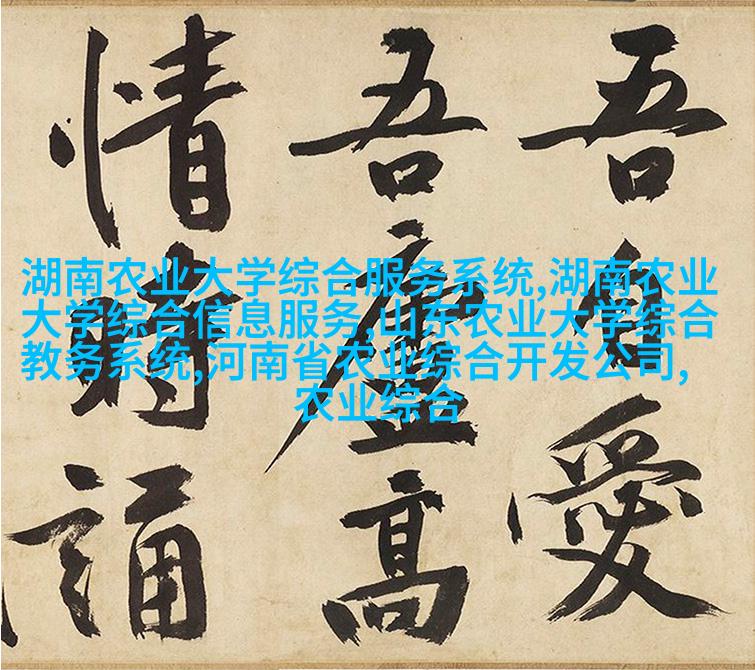 吾自愛
吾廬高
情時誦
湖南农业大学综合服务系统,湖南农业
大学综合信息服务,山东农业大学综合
教务系统,河南省农业综合开发公司,
农业综合